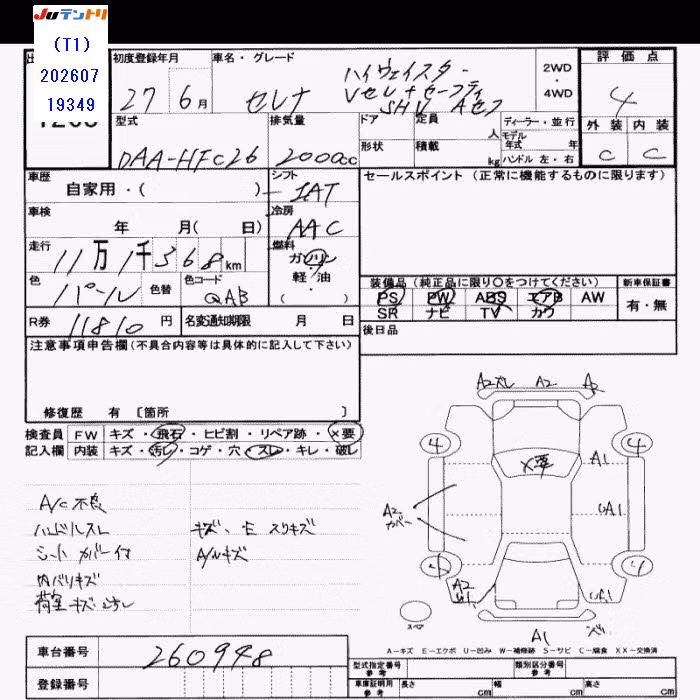 JUテントリ
(T1)
202607
19349
初度登録年月
27年6月
車名・グレード
セレナ
ハイウェイスター
Vセレ+セーフティ
SHV Aセフ
2WD
・
4WD
評価点
4
外装 内装
C C
型式
DAA-HFC26
排気量
2000cc
ドア
定員
人
形状
積載
kg
ディーラー・並行
モデル年式 年
ハンドル 左・右
車歴
自家用・( )
シフト
IAT
セールスポイント (正常に機能するものに限ります)
車検
年 月( 日)
冷房
AAC
走行
11万1千368km
燃料
ガソリン
・
軽油
・
( )
色
パール
色替
色コード
QAB
装備品 (純正品に限り○をつけてください)
PS PW ABS エアB AW
SR ナビ TV カワ
新車保証書
有・無
R券
11810円
名変通知期限 月 日
後日品
注意事項申告欄(不具合内容等は具体的に記入して下さい)
修復歴 有 [箇所 ]
検査員
記入欄
FW キズ・飛石・ヒビ割・リペア跡・×要
内装 キズ・汚レ・コゲ・穴・スレ・キレ・破レ
A/C不良
ハンドルスレ
シートカバー付
内バリキズ
荷室キズ
キズ、E スリキズ
A/Wキズ
A2 A2
4 4
×要
A1
A2
カバー
A2
スペア
A1
A-キズ E-エクボ U-凹み W-補修跡 S-サビ C-腐食 XX-交換済
車台番号
260948
登録番号
型式指定番号
参考
類別区分番号
参考
車庫証明用
参考
長さ cm
幅 cm
高さ cm